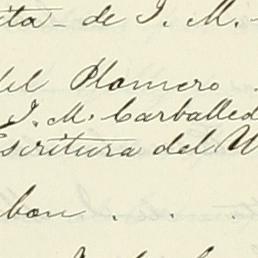 ita - de J. M. -
del Plomero .
J. M. Carballed
Escritura del U
bon . . .